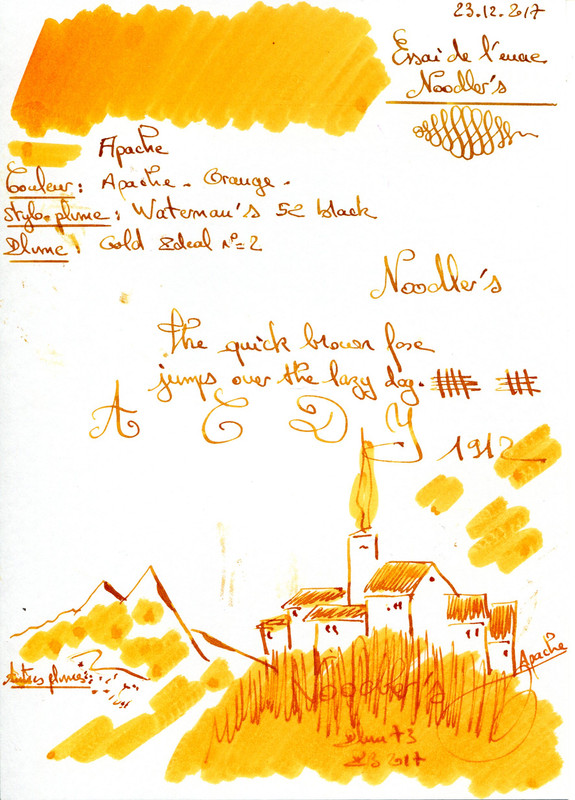 23.12.2017
Essai de l'encre
Noodler's
Apache
Couleur: Apache - Orange.
Stylo plume: Waterman's 52 black
Plume: Gold Ideal N°=2
Noodler's
the quick brown foxe
jumps over the lazy dog.
A C D Y
1912
Autres plumes:
Apache
Noodler's
2017